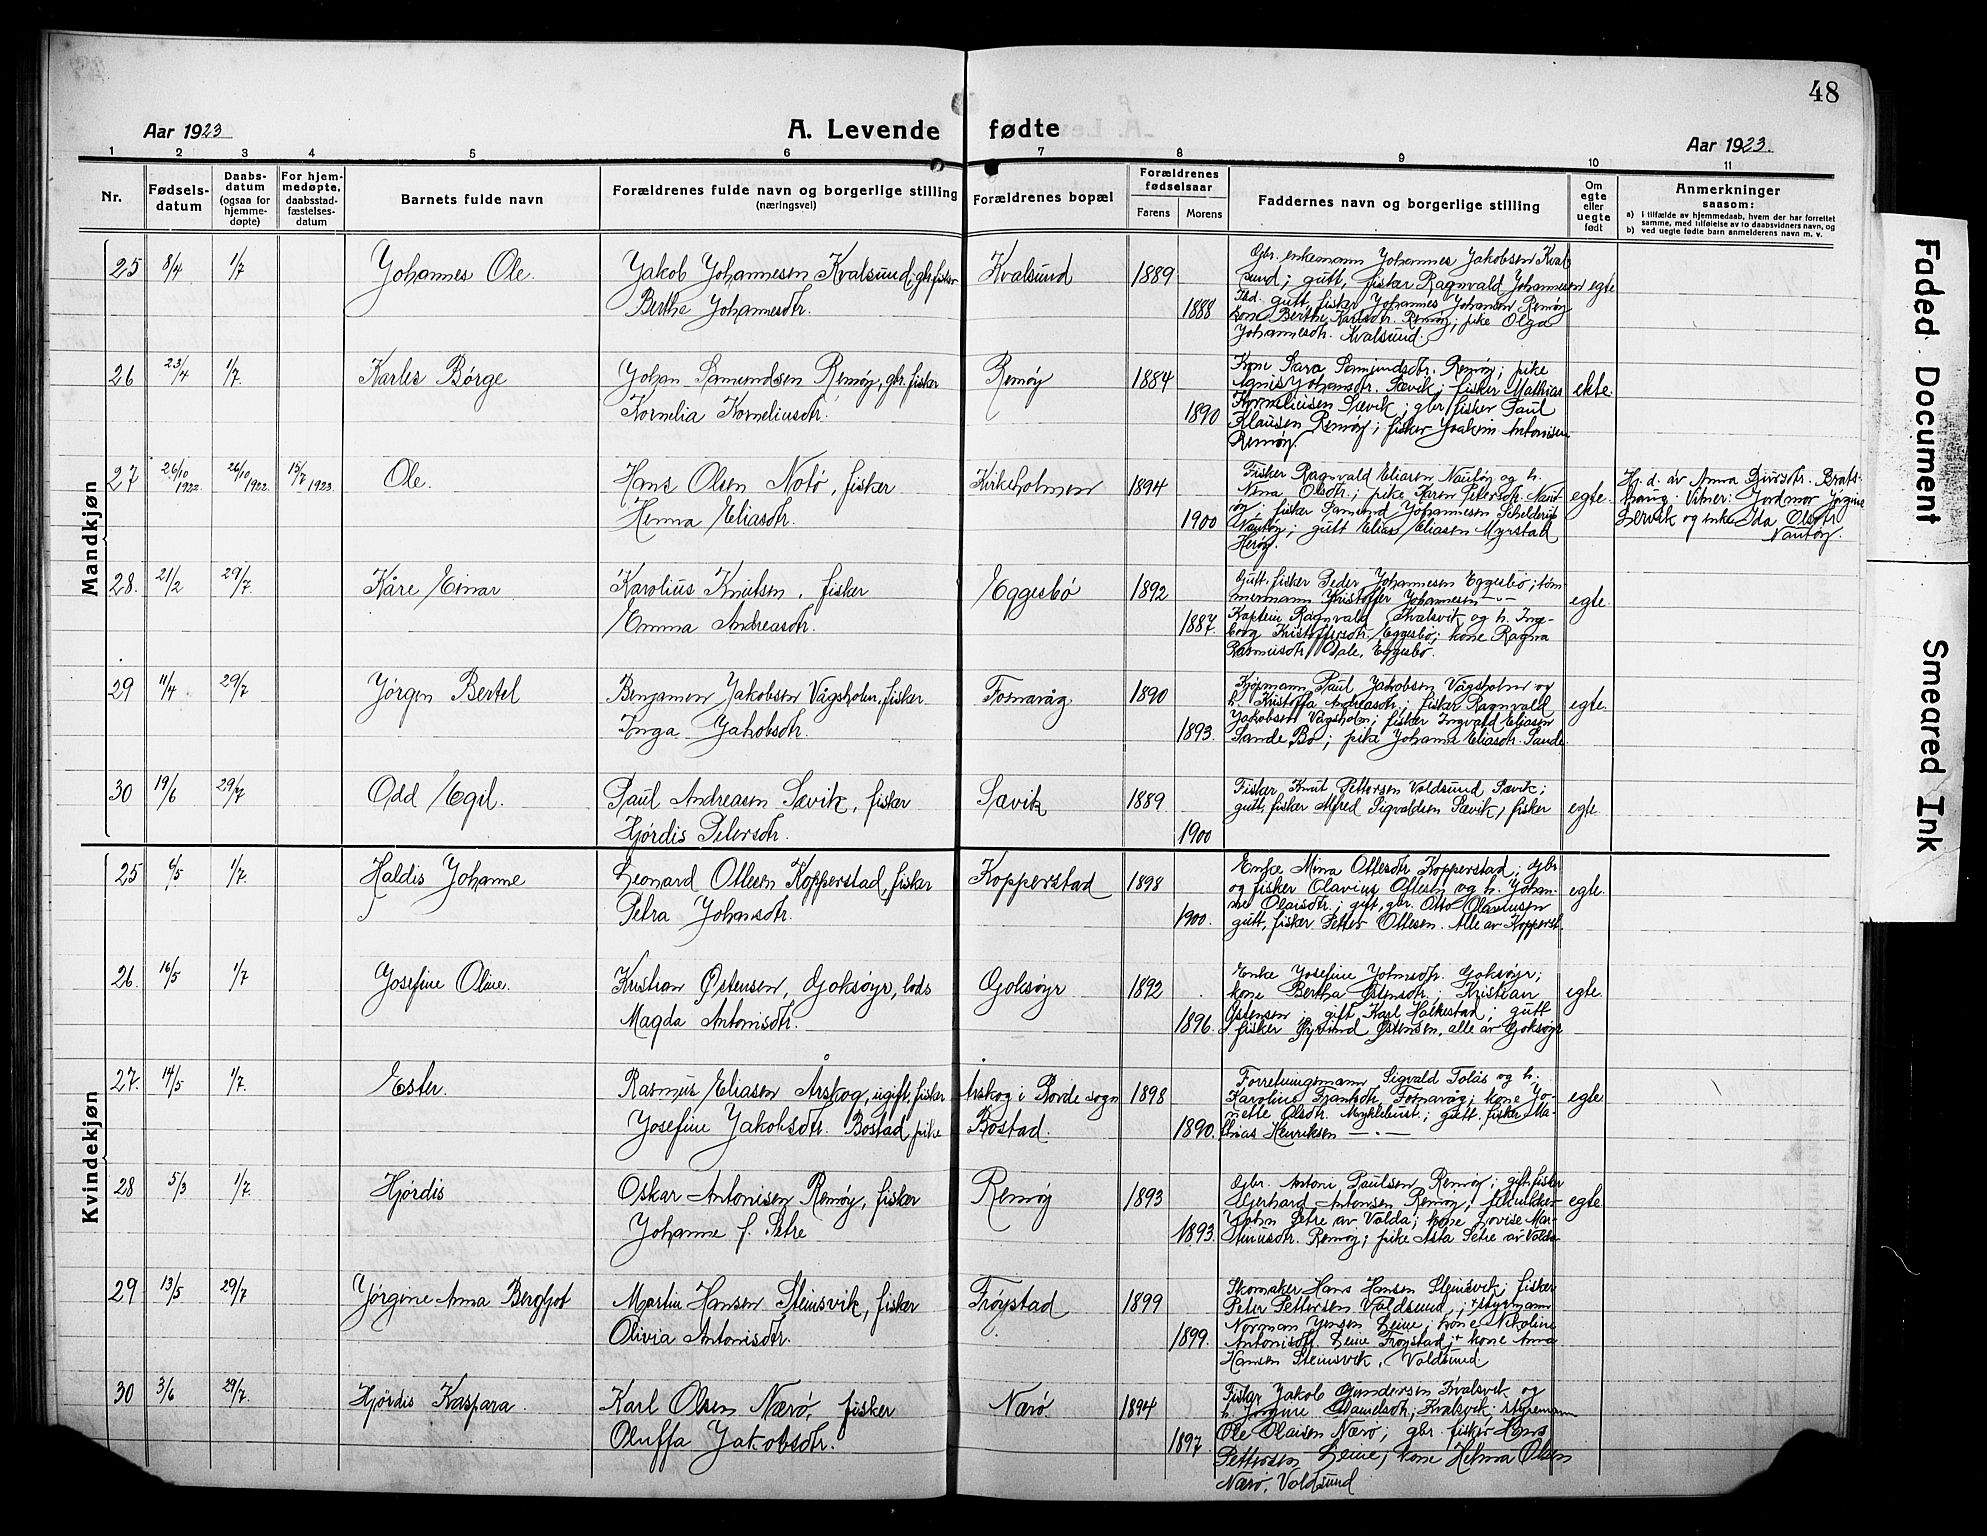 48
Aar 1923
A. Levende fødte
Aar 1923.
1 2 3 4 5 6 7 8 9 10 11
Nr.
Fødsels-
datum
Daabs-
datum
(ogsaa for
hjemme-
døpte)
For hjem-
medøpte,
daabsstad-
fæstelses-
datum
Barnets fulde navn
Forældrenes fulde navn og borgerlige stilling
(næringsvei)
Forældrenes bopæl
Forældrenes
fødselsaar
Farens Morens
Faddernes navn og borgerlige stilling
Om
egte
eller
uegte
født
Anmerkninger
saasom:
a) i tilfælde av hjemmedaab, hvem der har forrettet
samme, med tilføielse av to daabsvidners navn, og
b) ved uegte fødte barn anmelderens navn m. v.
Mandkjøn
25 8/4 1/7 Johannes Ole. Jakob Johannesen Kvalsund, gbr. fisker Kvalsund 1889 egte
Berthe Johannesdtr. 1888
Gbr. enkemann Johannes Jakobsen Kval-
sund; gutt, fisker Ragnvald Johannesen
Ibd. gutt, fisker Johannes Johansen Remøy
kone Berthe Karlsdtr. Remøy; pike Olga
Johannesdtr. Kvalsund.
26 23/4 1/7. Karles Børge Johan Samundsen Remøy, gbr. fisker Remøy 1884 ekte.
Kornelia Korneliusdtr. 1890
Kone Sara Samundsdtr. Remøy; pike
Agnis Johansdtr. Sævik; fisker Mathias
Korneliusen Sævik; gbr. fisker Paul
Klausen Remøy; fisker Joakim Antonisen
Remøy.
27 26/10 1922. 26/10 1922. 15/7 1923. Ole. Hans Olsen Notø, fisker Kirkeholmen 1894 egte.
Henna Eliasdtr. 1900
Fisker Ragnvald Eliasen Nautøy og h.
Nina Olsdtr.; pike Karen Petersdtr. Naut-
øy; fisker Samund Johannesen
Nautøy; gutt Elias Eliasen Myrstad
Herøy.
Hj. d. av Anna
haug. Vitner: Jordmor Jørgine
Lervik og enke Ida Olsdtr.
Nautøy.
28. 21/2 29/7. Kåre Einar Karolius Knutsen, fisker Eggesbø 1892 egte.
Emma Andreasdtr. 1887.
Gutt, fisker Peder Johannesen Eggesbø; tøm-
mermann Kristoffer Johannesen —"—
Kaptein Ragnvald Kvalsvik og h. Inge-
borg Kristoffersdtr. Eggesbø; kone Ragna
Rasmusdtr. Dale, Eggesbø.
29 11/4 29/7 Jørgen Bertel Benjamen Jakobsen Vågsholm, fisker. Fosnavåg. 1890 egte.
Inga Jakobsdtr. 1893.
Kjøpmann Paul Jakobsen Vågsholm og
h. Kristoffa Andreasdtr.; fisker Ragnvald
Jakobsen Vågsholm; fisker Ingvald Eliasen
Sande, Bø; pike Johanna Eliasdtr. Sande.
30 19/6 29/7 Odd Egil. Paul Andreasen Sævik, fisker Sævik 1889 egte.
Hjørdis Petersdtr. 1900
Fisker Knut Pettersen Voldsund Sævik;
gutt, fisker Alfred Sigvaldsen Sævik, fisker
Kvindekjøn
25 6/5 1/7. Haldis Johanne Leonard Ottesen Kopperstad, fisker Kopperstad 1898 egte.
Petra Johansdtr. 1900.
Enke Mina Ottesdtr. Kopperstad; gbr
og fisker Olavius Ottesen og h. Johan-
ne Olaisdtr.; gift, gbr. Otto Olaviusen
gutt, fisker Petter Ottesen. Alle av Kopperst.
26. 16/5 1/7 Josefine Oline. Kristian Østensen, Goksøyr, lods Goksøyr 1892 egte.
Magda Antonisdtr. 1896.
Enke Josefine Johnsdtr. Goksøyr;
kone Bertha Østensdtr. Kristian
Østensen; gift Karl Halkestad; gutt
fisker Øyvind Østensen, alle av Goksøyr
27. 14/5 1/7. Ester. Rasmus Eliasen Årskog, ugift, fisker Årskog i Borde sogn 1898 egte
Josefine Jakobsdtr. Bøstad, pike Bøstad. 1890.
Forretningsmann Sigvald Tolås og h.
Karoline Fransdtr. Fosnavåg; kone Jo-
nette Olsdtr. Myklebust; gutt, fisker Ma-
thias Henriksen —"—
28 5/3 1/7. Hjørdis Oskar Antonisen Remøy, fisker Remøy 1893 egte
Johanne f. Sætre 1893.
Gbr. Antoni Paulsen Remøy; gift, fisker
Gerhard Antonsen Remøy;
John Setre av Volda; kone Lovise Mar-
tinusdtr. Remøy; pike Asta Setre av Volda
29 13/5 29/7 Jørgine Anna Bergljot Martin Hansen Steinsvik, fisker Frøystad 1899
Olivia Antonisdtr. 1899.
Skomaker Hans Hansen Steinsvik; fisker
Peter Pettersen Voldsund; styrmann
Norman Jensen Leine; kone Nikoline
Antonisdtr. Leine Frøystad; kone Anna
Hansen Steinsvik, Voldsund.
30 3/6 29/7. Hjørdis Kaspara. Karl Olsen Nærø, fisker Nærø. 1894
Oluffa Jakobsdtr. 1897.
Fisker Jakob Gundersen Kvalsvik og
h. Jørgine Danielsdtr; Kvalsvik styrmann
Ole Olaisen Nærø; gbr. fisker Hans
Pettersen Leine; kone Helma Olsen
Nærø, Voldsund
Faded Document
Smeared Ink